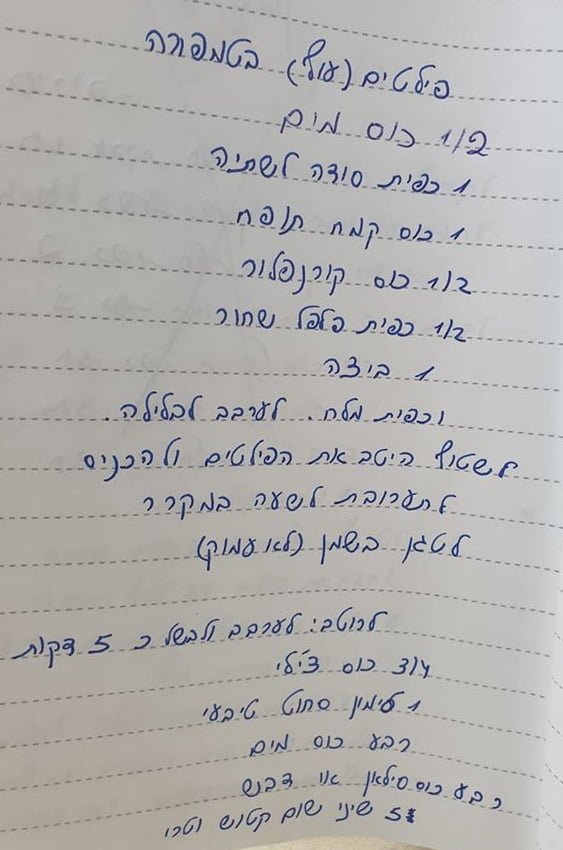 פילטים (עוף) בטמפורה
1/2 כוס מים
1 כפית סודה לשתיה
1 כוס קמח תופח
1/2 כוס קורנפלור
1/2 כפית פלפל שחור
1 ביצה
וכפית מלח. לערבב לבלילה.
לשטוף היטב את הפילטים ולהכניס
לתערובת לשעה במקרר
לטגן בשמן (לא עמוק)
לרוטב: לערבב ולבשל כ 5 דקות
3/4 כוס צ'ילי
1 לימון סחוט טיבעי
רבע כוס מים
רבע כוס סילאן או דבש
5 שיני שום קטוש וטרי